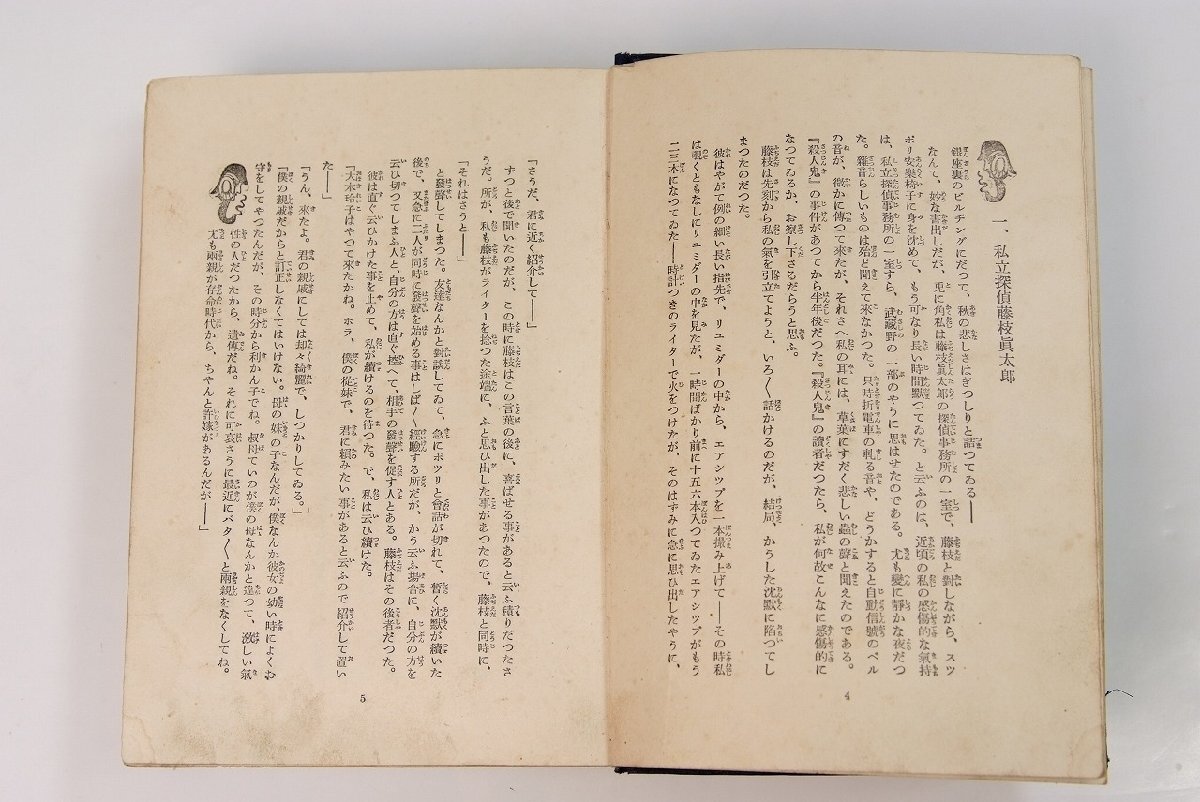 一、私立探偵藤枝眞太郎
銀座裏のビルヂングにだつて、秋の悲しさはぎつしりと詰つてゐる――
なんて、妙な書出しだが、兎に角私は藤枝眞太郎の探偵事務所の一室で、藤枝と對しながら、スツ
ポリ安樂椅子に身を沈めて、もう可なり長い時間默つてゐた。と云ふのは、近頃の私の感傷的な氣持
は、私立探偵事務所の一室すら、武藏野の一部のやうに思はせたのである。尤も變に靜かな夜だつ
た。雜音らしいものは殆ど聞えて來なかつた。只時折電車の軋る音や、どうかすると自動信號のベル
の音が、微かに傳つて來たが、それさへ私の耳には、草葉にすだく悲しい蟲の聲と聞えたのである。
『殺人鬼』の事件があつてから半年後だつた。『殺人鬼』の讀者だつたら、私が何故こんなに感傷的に
なつてゐるか、お察し下さるだらうと思ふ。
藤枝は先刻から私の氣を引立てようと、いろ〱話かけるのだが、結局、かうした沈默に陷つてし
まつたのだつた。
彼はやがて例の細い長い指先で、リユミダーの中から、エアシツプを一本撮み上げて――その時私
は覗くともなしにリユミダーの中を見たが、一時間ばかり前に十五六本入つてゐたエアシツプがもう
二三本になつてゐた――時計つきのライターで火をつけたが、そのはずみに急に思ひ出したやうに、
4
「さうだ、君に近く紹介して――」
ずつと後で聞いたのだが、この時に藤枝はこの言葉の後に、喜ばせる事があると云ふ積りだつたさ
うだ。所が、私も藤枝がライターを捻つた途端に、ふと思ひ出した事があつたので、藤枝と同時に、
「それはさうと――」
と發聲してしまつた。友達なんかと對談してゐて、急にポツリと會話が切れて、暫く沈默が續いた
後で、又急に二人が同時に發聲を始める事はしば〱經驗する所だが、かう云ふ場合に、自分の方を
云ひ切つてしまふ人と、自分の方は直ぐ控へて、相手の發聲を促す人とある。藤枝はその後者だつた。
彼は直ぐ云ひかけた事を止めて、私が續けるのを待つた。で、私は云ひ續けた。
「大木玲子はやつて來たかね。ホラ、僕の從妹で、君に賴みたい事があると云ふので紹介して置い
た――」
「うん、來たよ。君の親戚にしては却々綺麗で、しつかりしてゐる。」
「僕の親戚だからと訂正しなくてはいけない。母の妹の子なんだが、僕なんか彼女の幼い時によくお
守をしてやつたんだが、その時分から利かん子でね。叔母ていのが僕の母なんかと違つて、激しい氣
性の人だつたから、遺傳だね。それに可哀さうに最近にバタ〱と兩親をなくしてね。
尤も兩親が存命時代から、ちやんと許嫁があるんだが――」
5